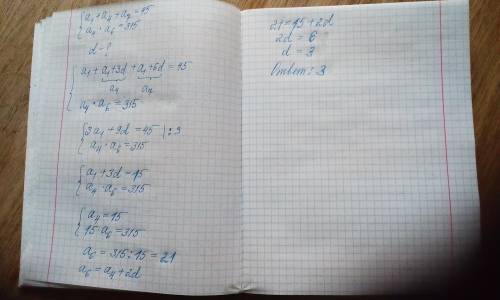 {a₁ + a₄ + a₇ = 45
a₄ · a₆ = 315
d - ?
{a₁ + a₁ + 3d + a₁ + 6d = 45
a₄ a₇
a₄ · a₆ = 315
{3a₁ + 9d = 45 | : 3
a₄ · a₆ = 315
{a₁ + 3d = 15
a₄ · a₆ = 315
{a₄ = 15
15 · a₆ = 315
a₆ = 315 : 15 = 21
a₆ = a₄ + 2d
21 = 15 + 2d
2d = 6
d = 3
Ответ: 3